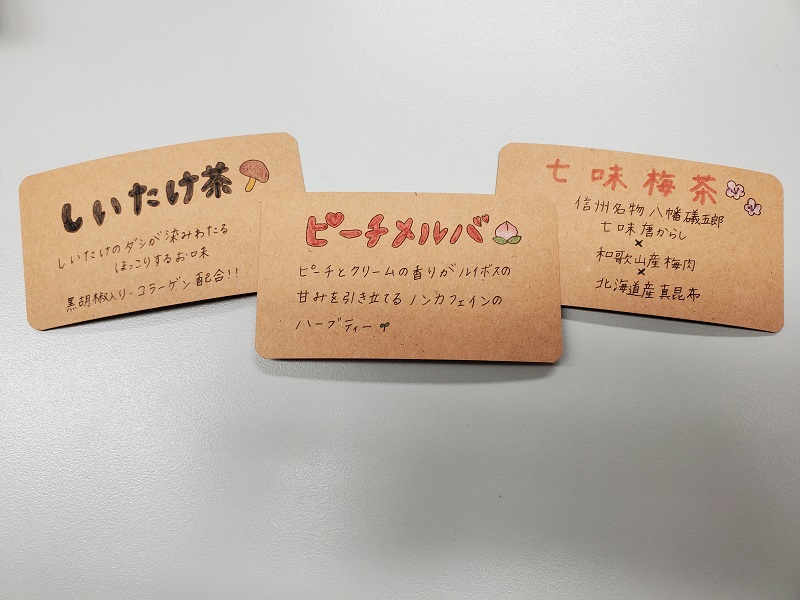 しいたけ茶
しいたけのダシが染みわたる
ほっこりするお味
黒胡椒入り・コラーゲン配合!!
ピーチメルバ
ピーチとクリームの香りがルイボスの
甘みを引き立てるノンカフェインの
ハーブティー
七味梅茶
信州名物 八幡礒五郎
七味唐からし
×
和歌山産梅肉
×
北海道産真昆布